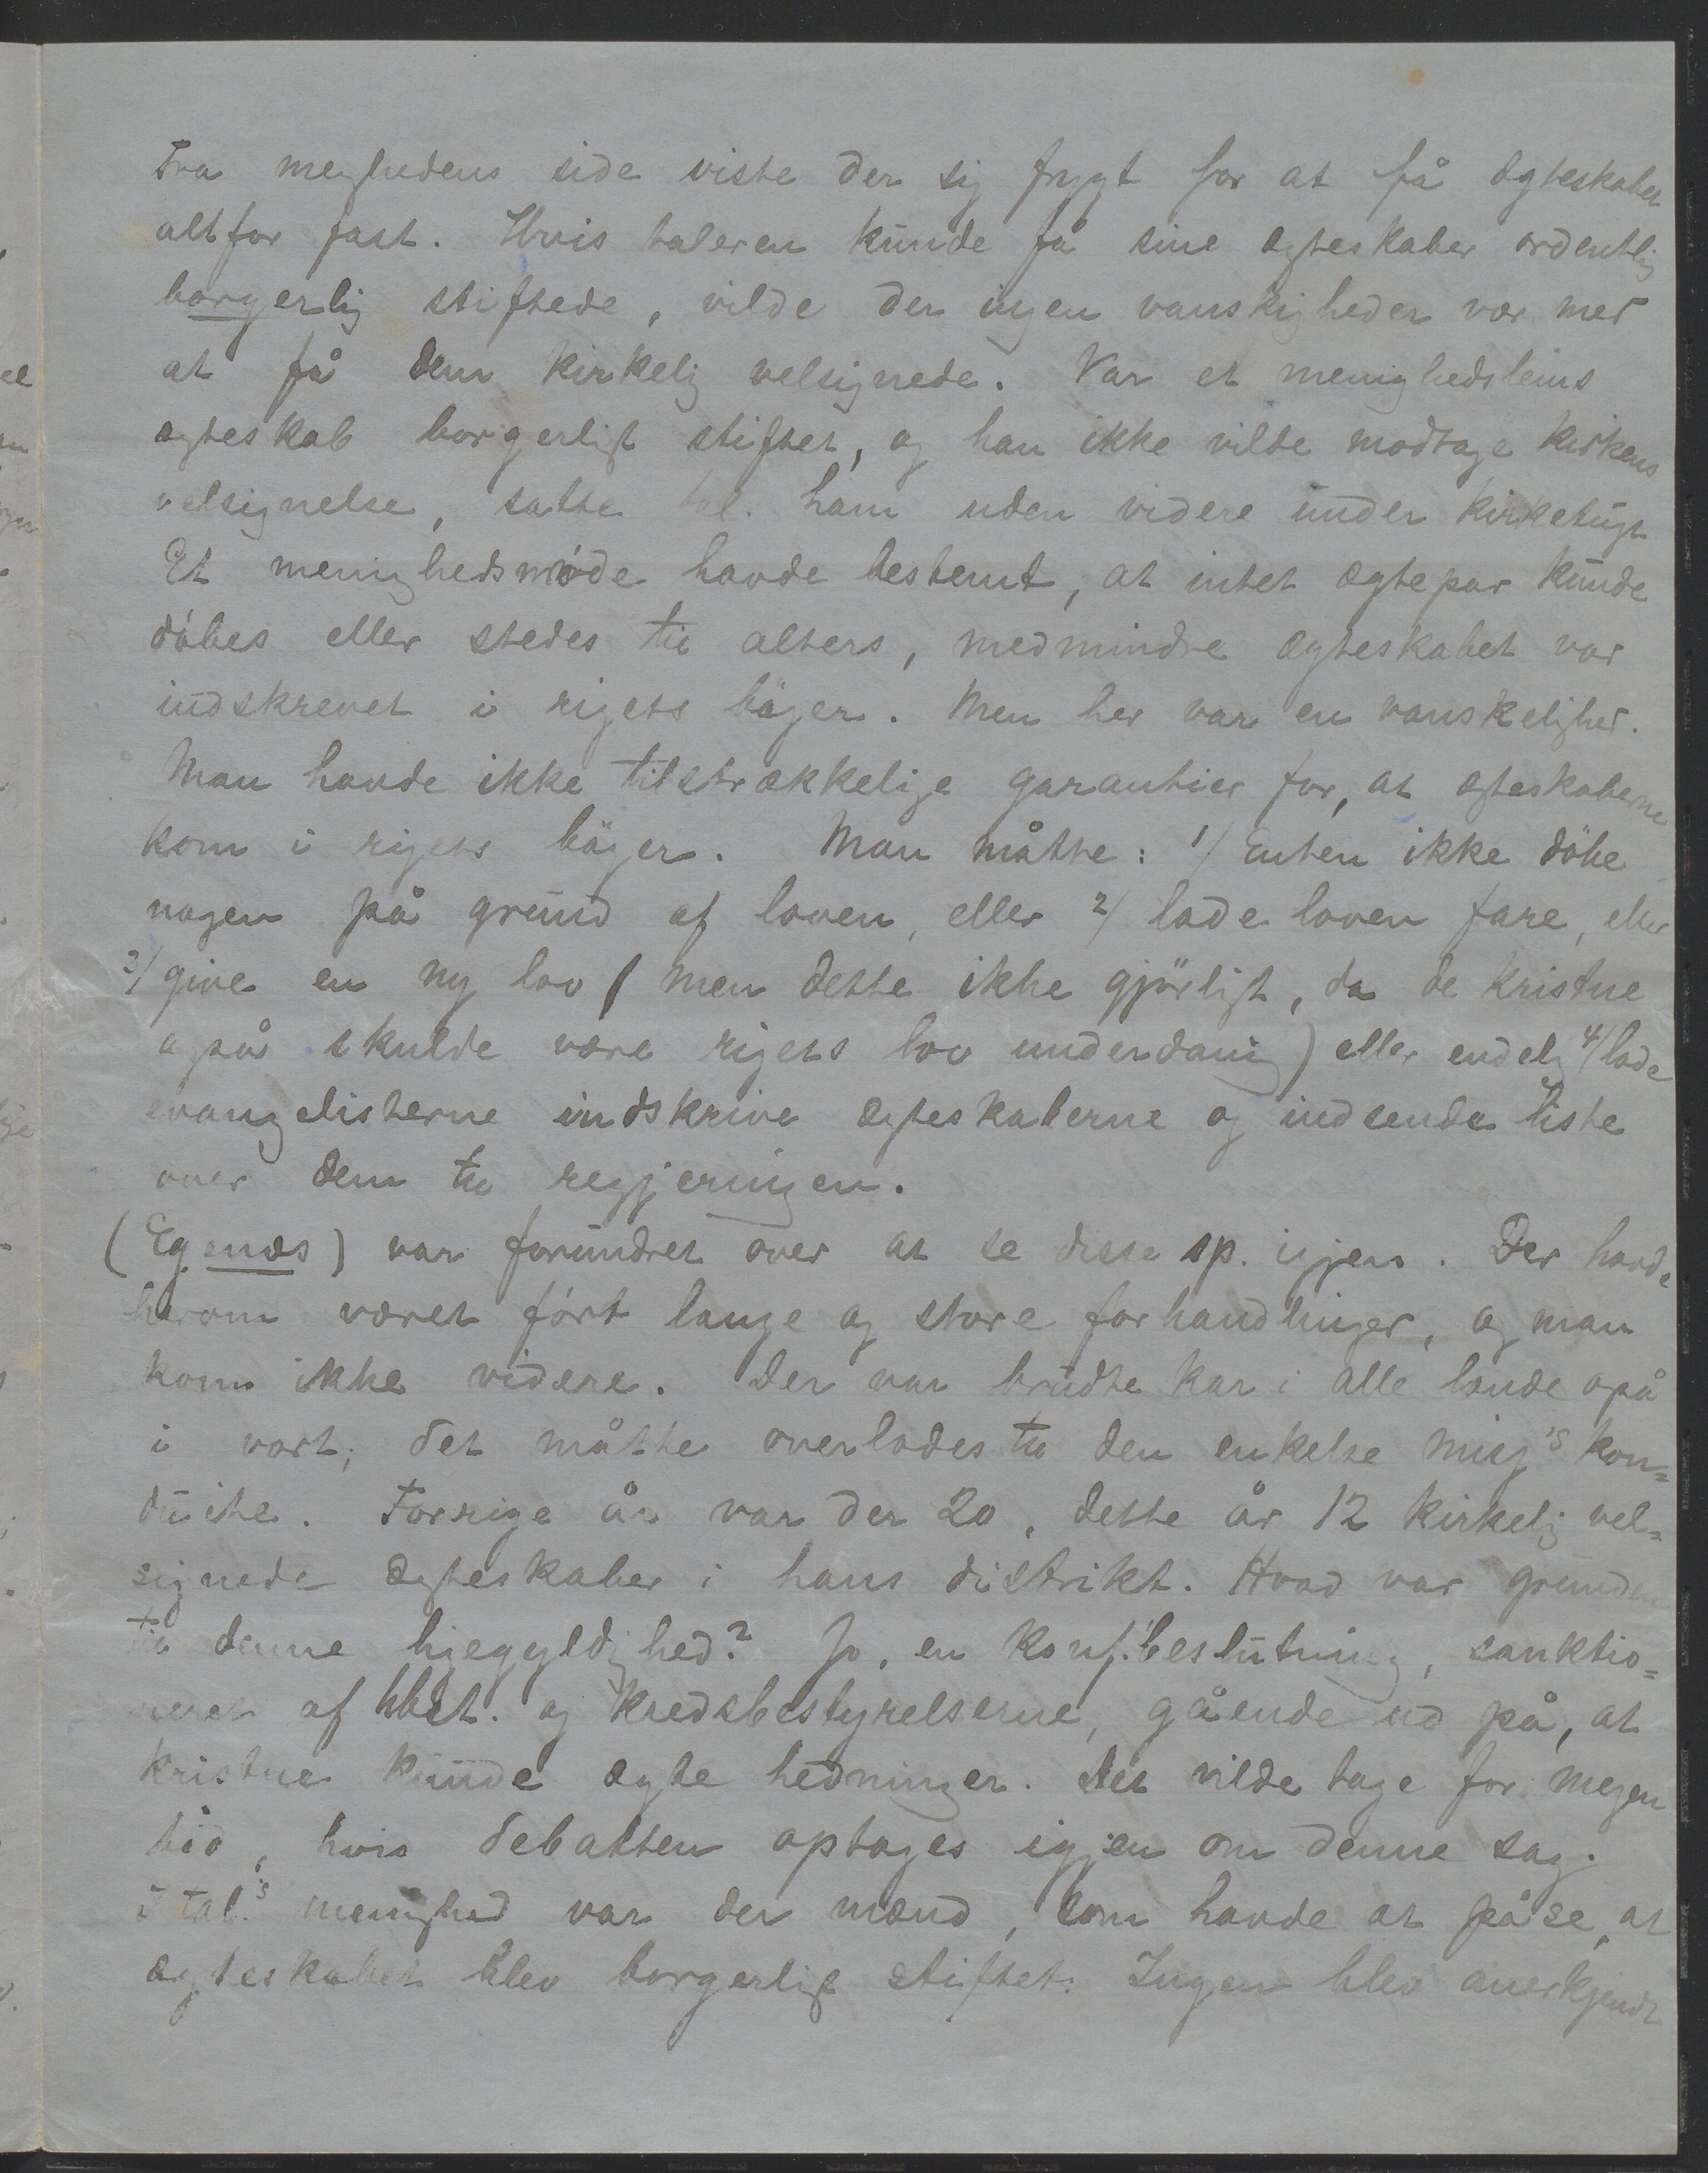 Fra meghedens side viste der sig frygt for at få ægteskaber
altfor fast. Hvis taleren kunde få sine ægteskaber ordentlig
borgerlig stiftede, vilde der ingen vanskigheder vær med
at få dem kirkelig velsignede. Var et menighedslems
ægteskab borgerligt stiftet, og han ikke vilde modtage kirkens
velsignelse, satte tal. ham uden videre under kirketugt
Et menighedsmøde havde bestemt, at intet ægtepar kunde
døbes eller stedes til alters, medmindre ægteskabet var
indskrevet i rigets bøger. Men her var en vanskelighed.
Man havde ikke tilstrækkelige garantier for, at ægteskaberne
kom i rigets bøger. Man måtte: 1/ Enten ikke döbe
nogen på grund af loven, eller 2/ lade loven fare, eller
3/ give en ny lov (men dette ikke gjörligt, da de kristne
også skulde være rigets lov underdanig) eller endelig 4/ lade
evangelisterne indskrive ægteskaberne og indsende liste
over dem til regjeringen.
(Egenæs) var forundret over at se disse sp. igjen. Der havde
herom været ført lange og store forhandlinger, og man
kom ikke videre. Der var brudte kar i alle lande også
i vort; det måtte overlades til den enkelte misj's kon=
duite. Forrige år var der 20, dette år 12 kirkelig vel=
signede ægteskaber i hans distrikt. Hvad var grunden
til denne ligegyldighed? Jo, en konf.beslutning, sanktio=
neret af hbst. og kredsbestyrelserne, gående ud på, at
kristne kunde ægte hedninger. Det vilde tage for megen
tid, hvis debatten optages igjen om denne sag.
I tal.'s menighed var der mænd, som havde at påse, at
ægteskabet blev borgerligt stiftet. Ingen blev anerkjendt